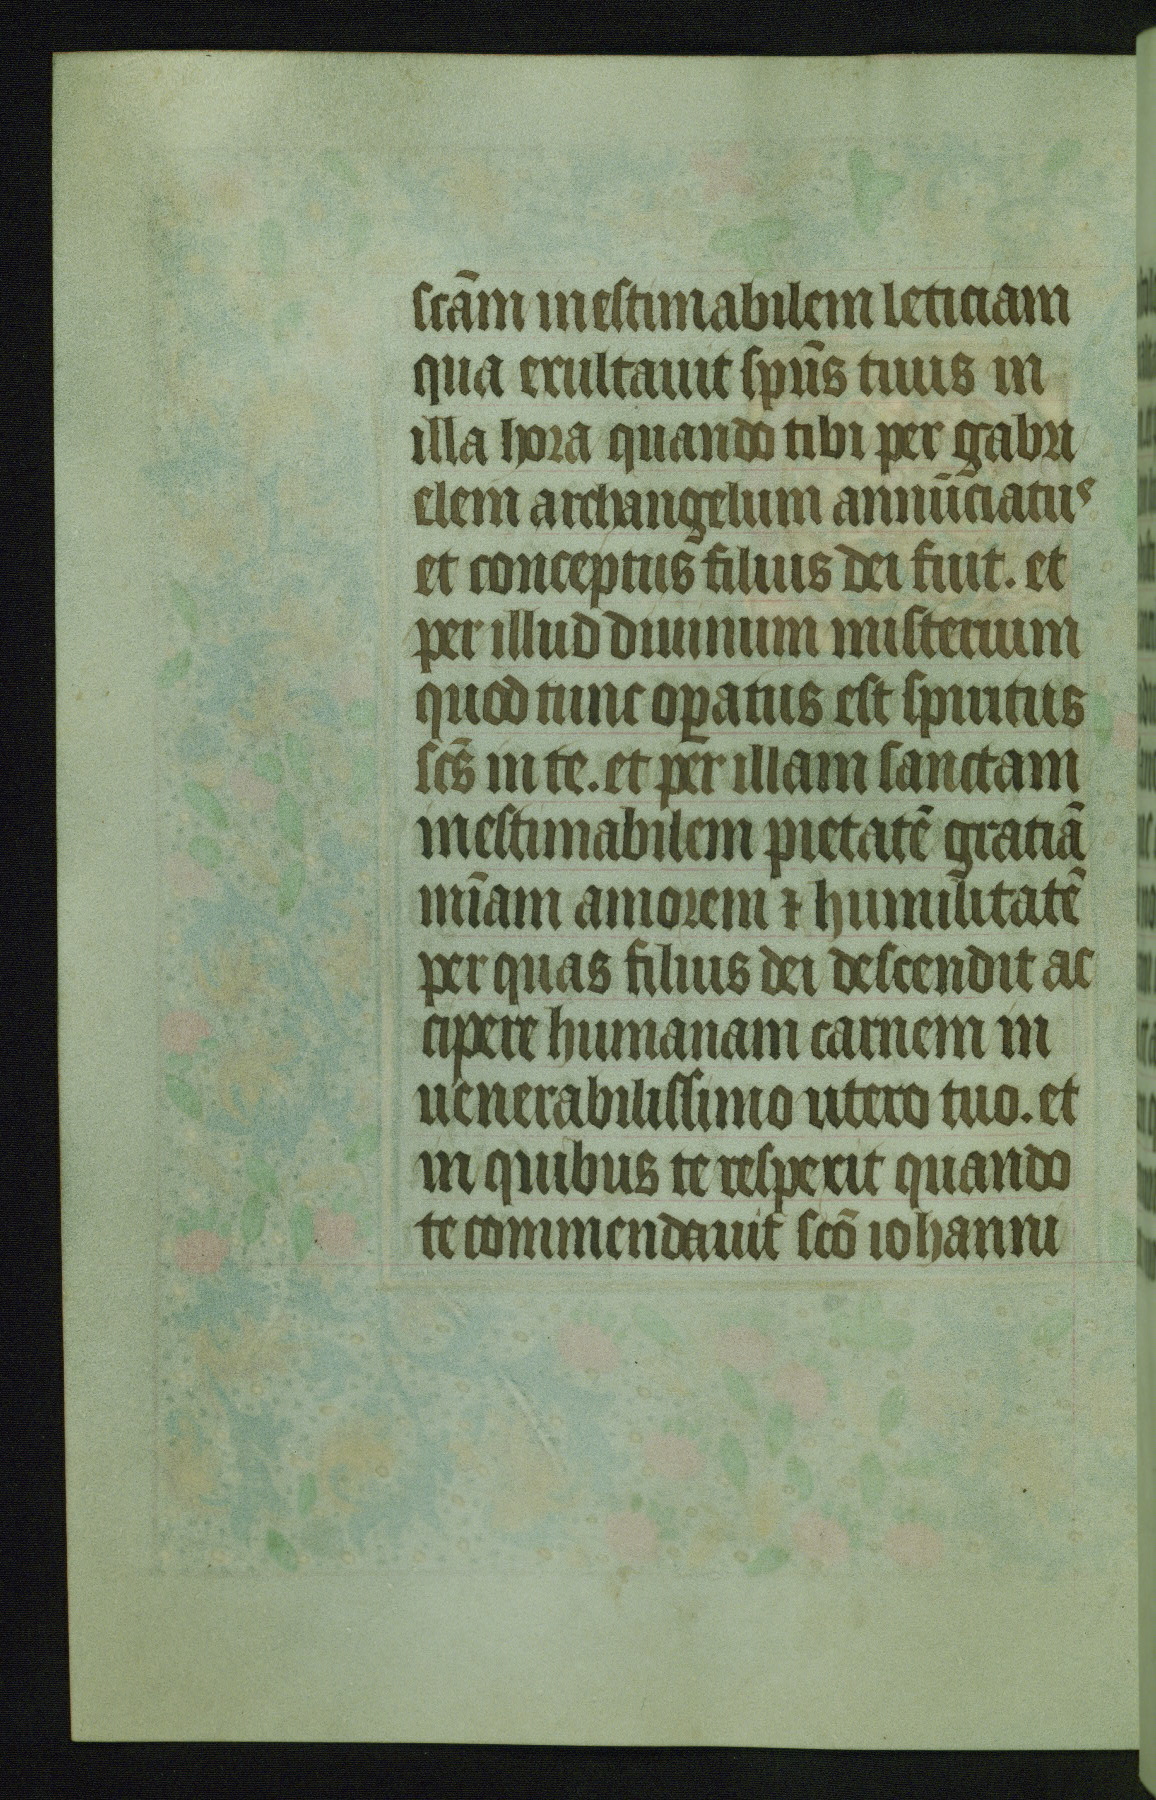 scām inestimabilem leticiam
qua exultauit spūs tuus in
illa hora quando tibi per gabri
elem archangelum annūciatus
et conceptus filius dei fuit. et
per illud diuinum misterium
quod tunc oꝑatus est spiritus
scs̄ in te. et per illam sanctam
inestimabilem pietatē gratiā
mīam amorem ⁊ humilitatē
per quas filius dei descendit ac
cipere humanam carnem in
uenerabilissimo utero tuo. et
in quibus te respexit quando
te commendauit scō iohanni